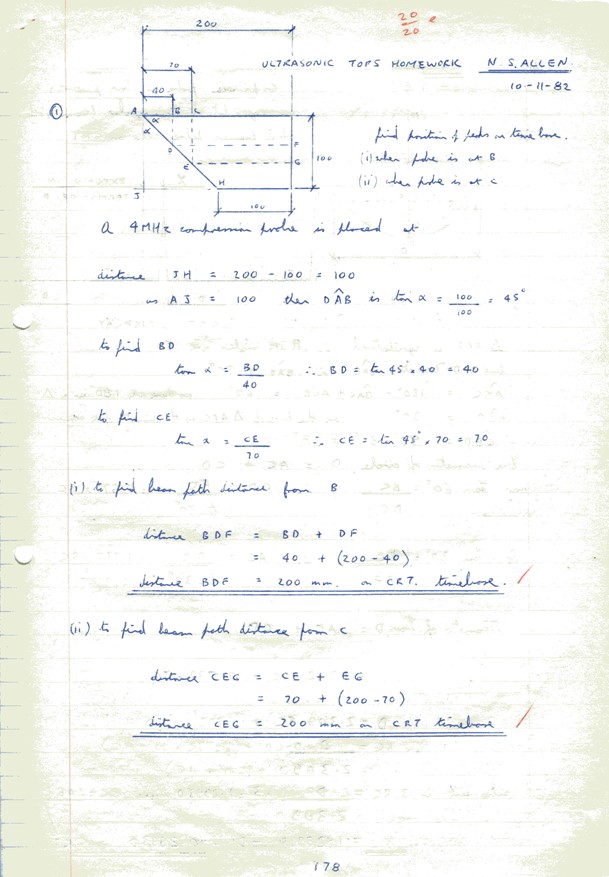 20
20
200
ULTRASONIC TOPS HOMEWORK N.S.ALLEN
10-11-82
70
40
①
A B C
α
α
find position of peaks on time base.
D F
(i) when probe is at B
E G
100
(ii) when probe is at C
H
J
100
A 4MHz compression probe is placed at
distance JH = 200 - 100 = 100
as AJ = 100 then DÂB is tan α = 100/100 = 45°
to find BD
tan α = BD/40 ∴ BD = tan 45°. 40 = 40
to find CE
tan α = CE/70 ∴ CE = tan 45°. 70 = 70
(i) to find beam path distance from B
distance BDF = BD + DF
= 40 + (200-40)
distance BDF = 200 mm. on CRT. timebase.
(ii) to find beam path distance from C
distance CEG = CE + EG
= 70 + (200-70)
distance CEG = 200 mm on CRT timebase
178